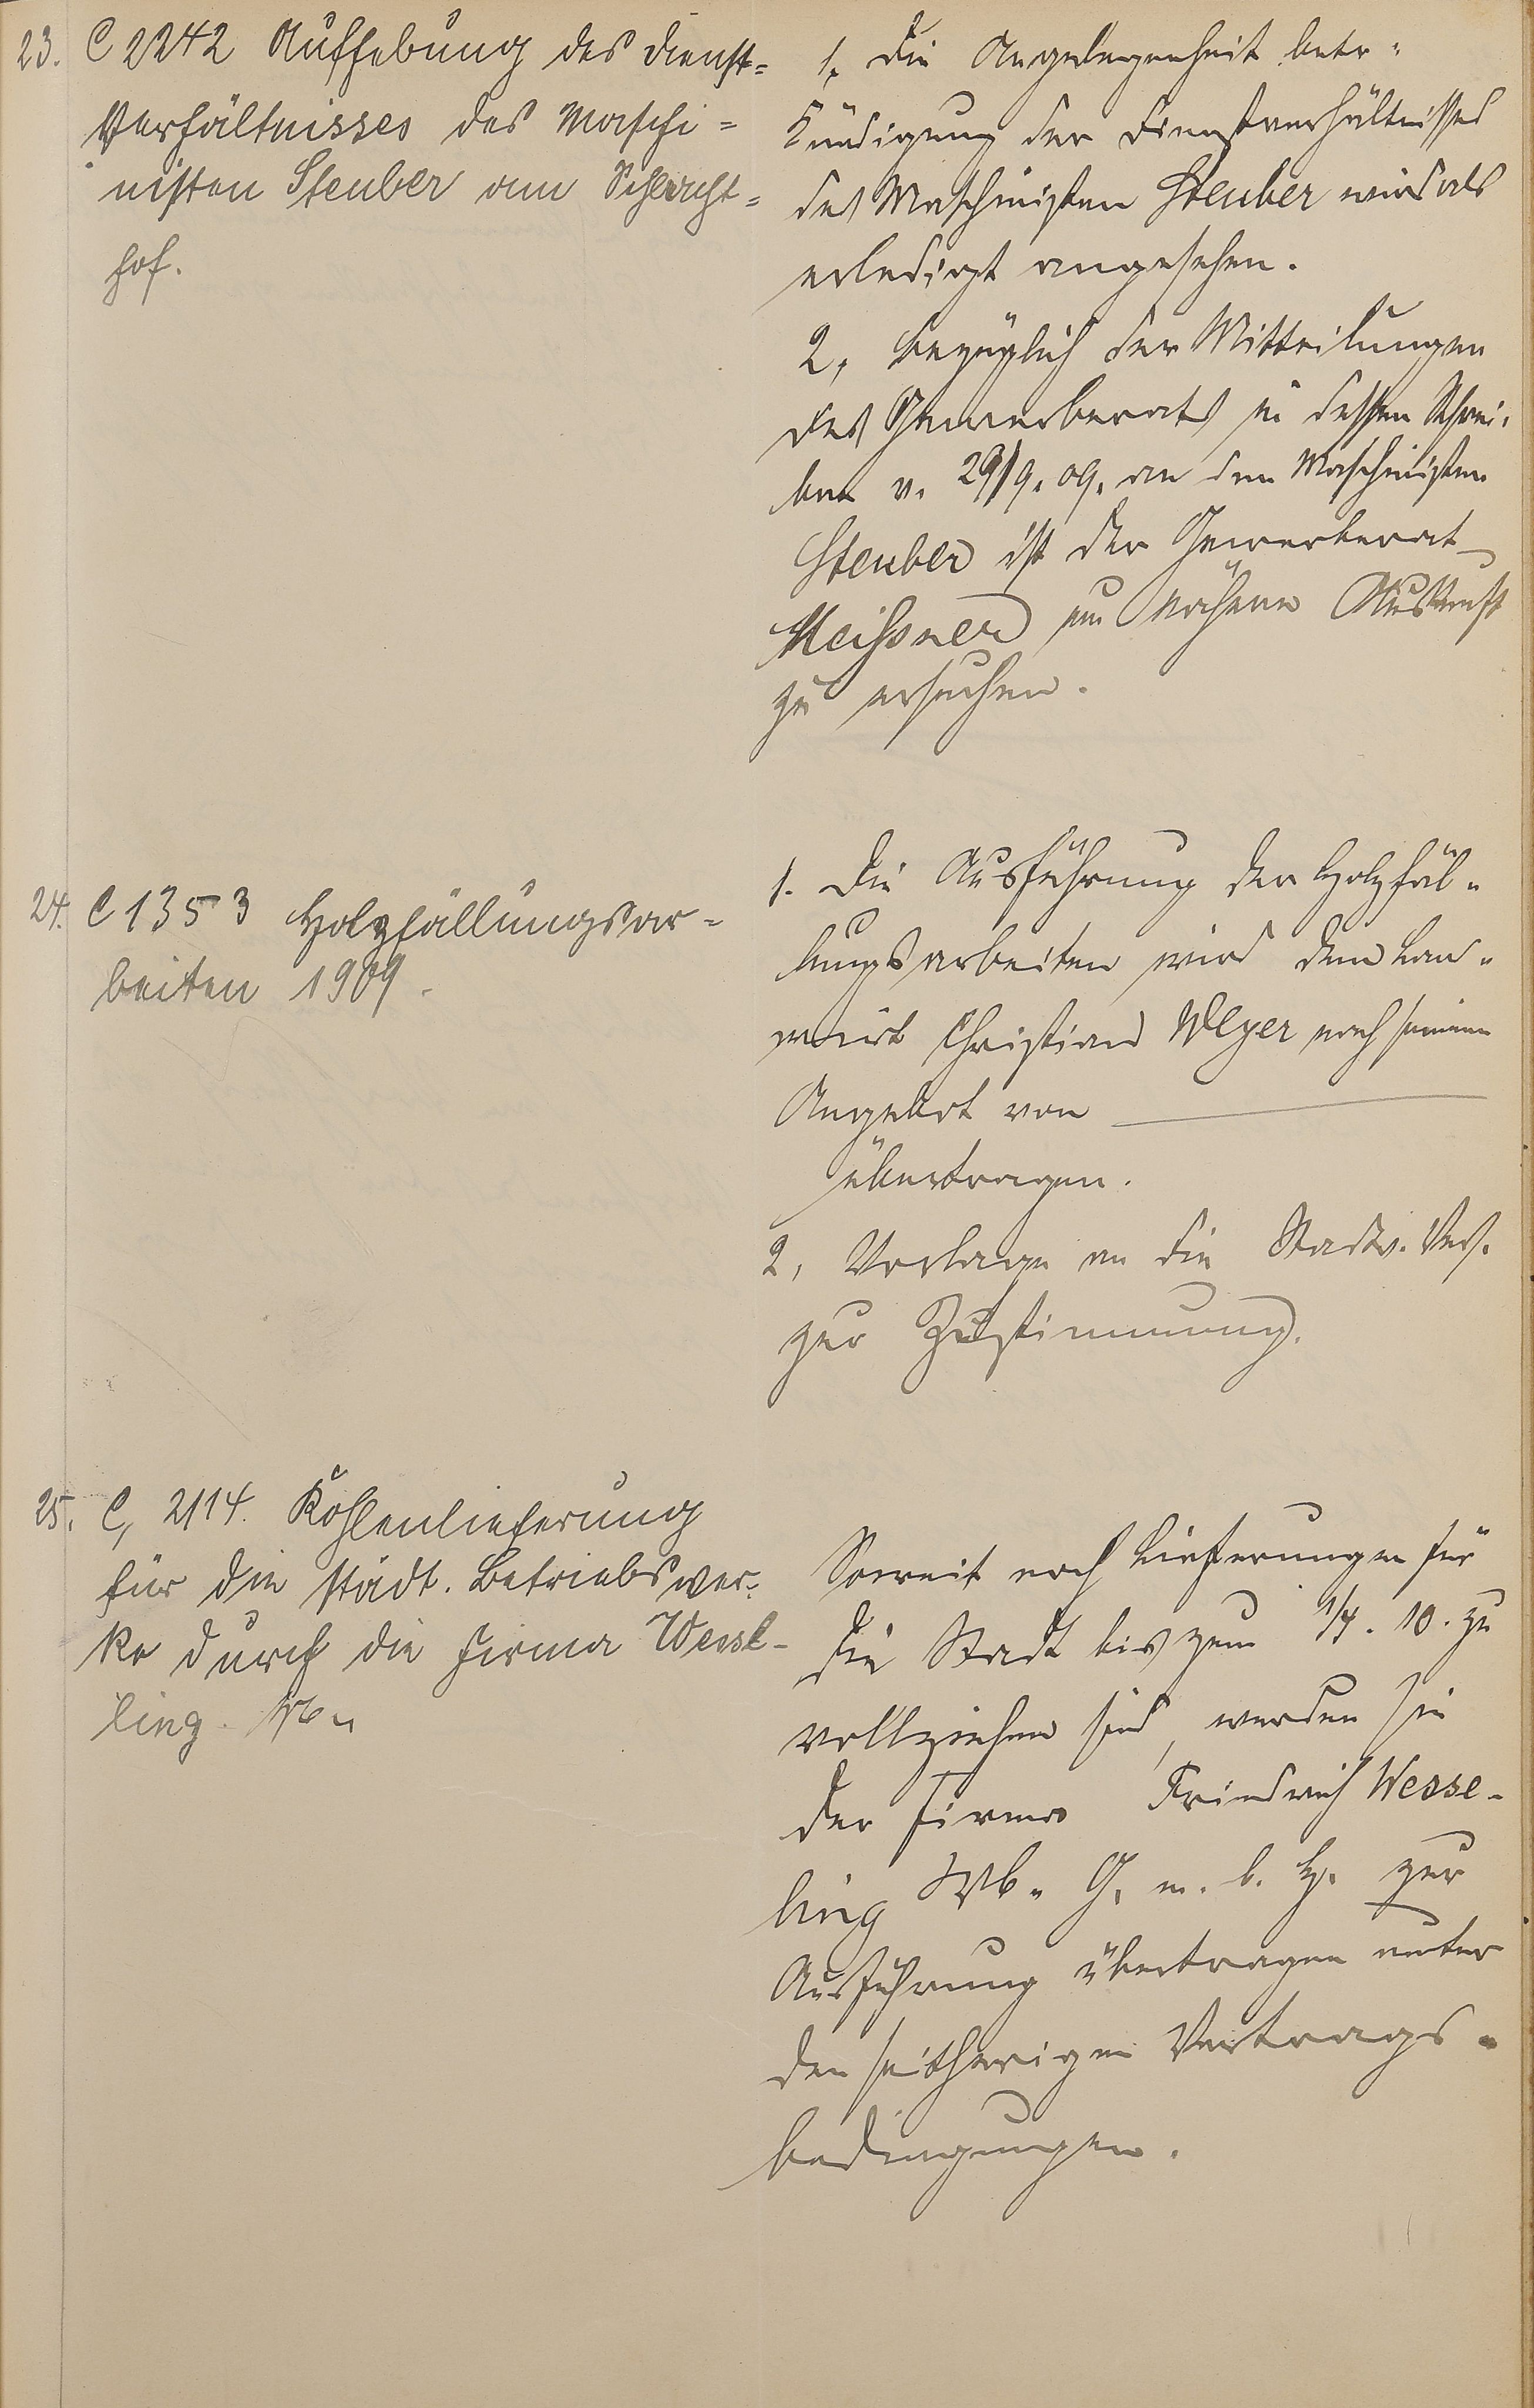 23. C 2242 Aufhebung des Dienst=
Verhältnisses des Maschi=
nisten Steuber am Schlacht=
hof.
1, Die Angelegenheit betr.
Kündigung der Dienstverhältnisses
des Maschinisten Steuber wird als
erledigt angesehen.
2, bezüglich der Mitteilungen
des Gewerberats in dessen Schrei-
ben v. 29/9. 09. an den Maschinisten
Steuber ist der Gewerberat
Meißner um nähere Auskunft
zu ersuchen.
24. C 1353 Holzfällungsar=
beiten 1909.
1. Die Ausführung der Holzfäl-
lungsarbeiten wird dem Lan-
wirt Christian Weyer nach seinem
Angebot von
übertragen.
2, Vorlage an die Stadtv. Vers.
zur Zustimmung.
25. C, 2114. Kohlenlieferung
für die städt. Betriebswer-
ke durch die Firma Wessl-
ling.
Soweit noch Lieferungen für
die Stadt bis zum 1/4. 10. zu
vollziehen sind, werden sie
der Firma Friedrich Wesse-
ling G. m. b. H. zur
Ausführung übertragen unter
den seitherigen Vertrags-
bedingungen.